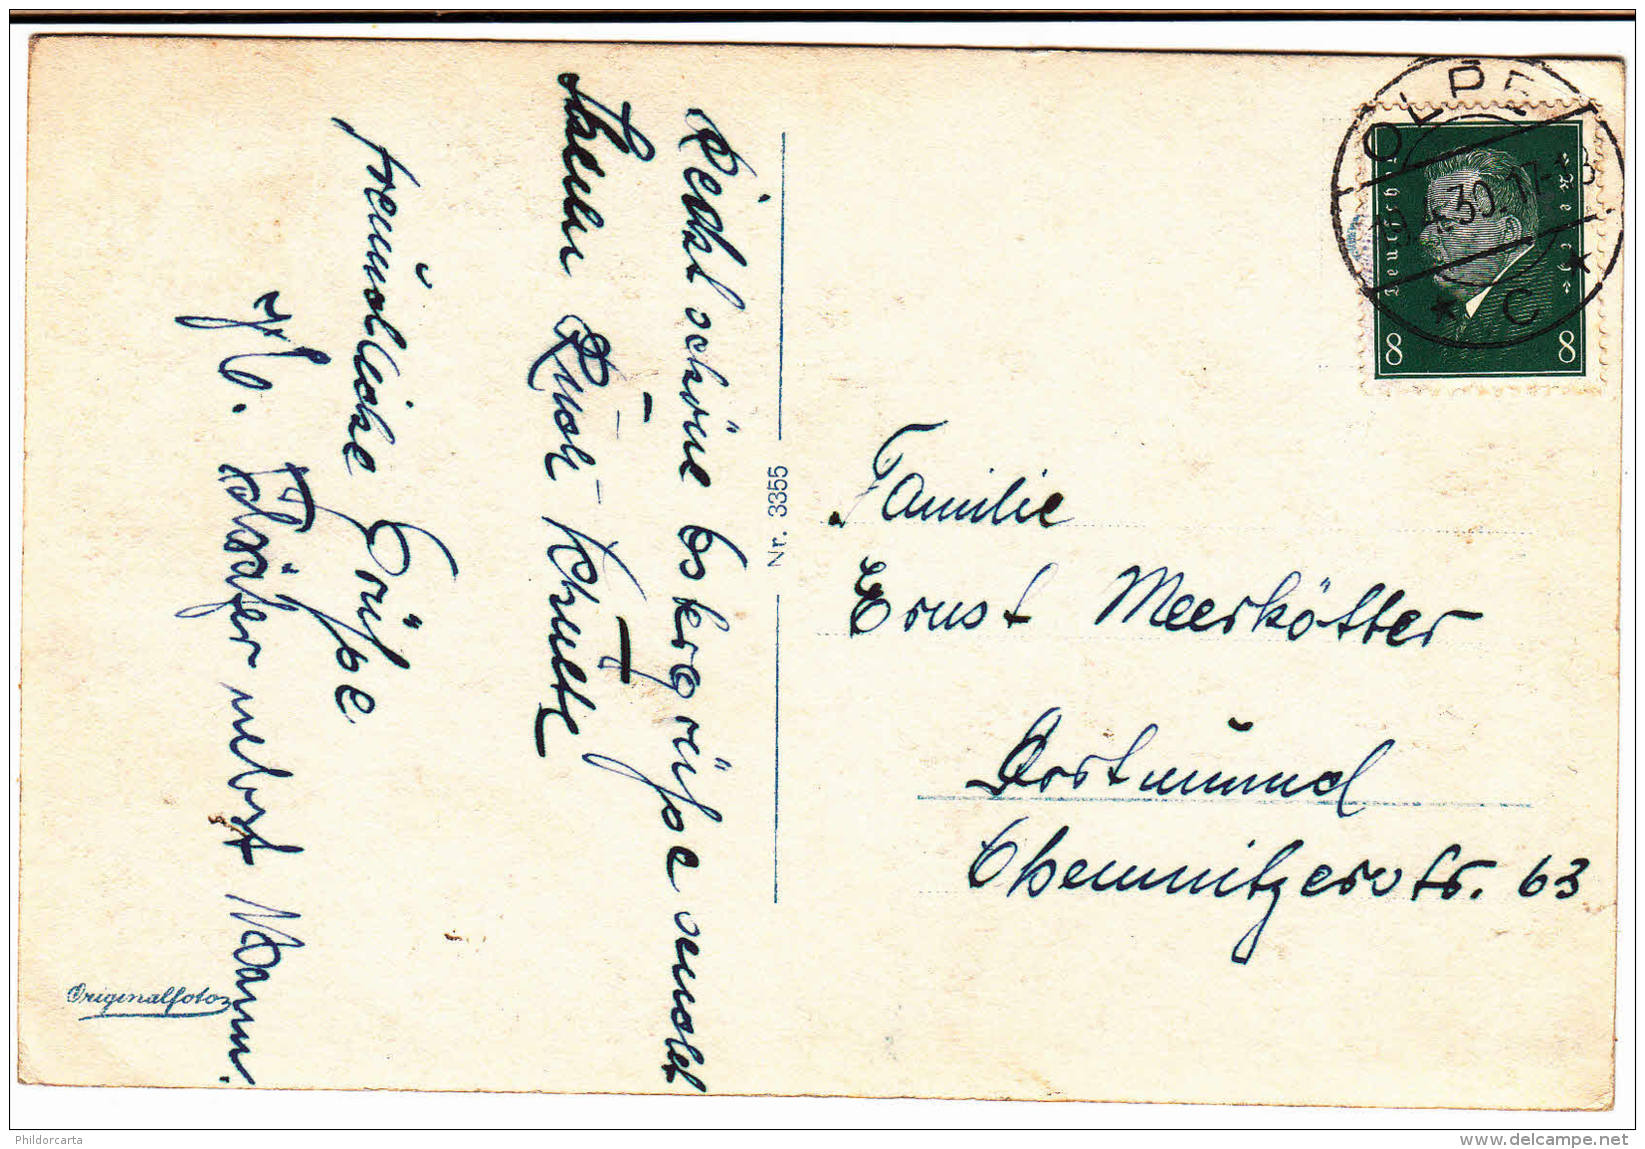 Recht schöne Ostergrüße sendet
Rudi Schulte
freundliche Grüße
H. Schäfer nebst Mann.
Originalfoto
Nr. 3355
OLPE
19.4.30.17-18
* C *
Deutsches Reich
8 8
Familie
Ernst Meerkötter
Dortmund
Chemnitzerstr. 63
Phildorcarta
www.delcampe.net